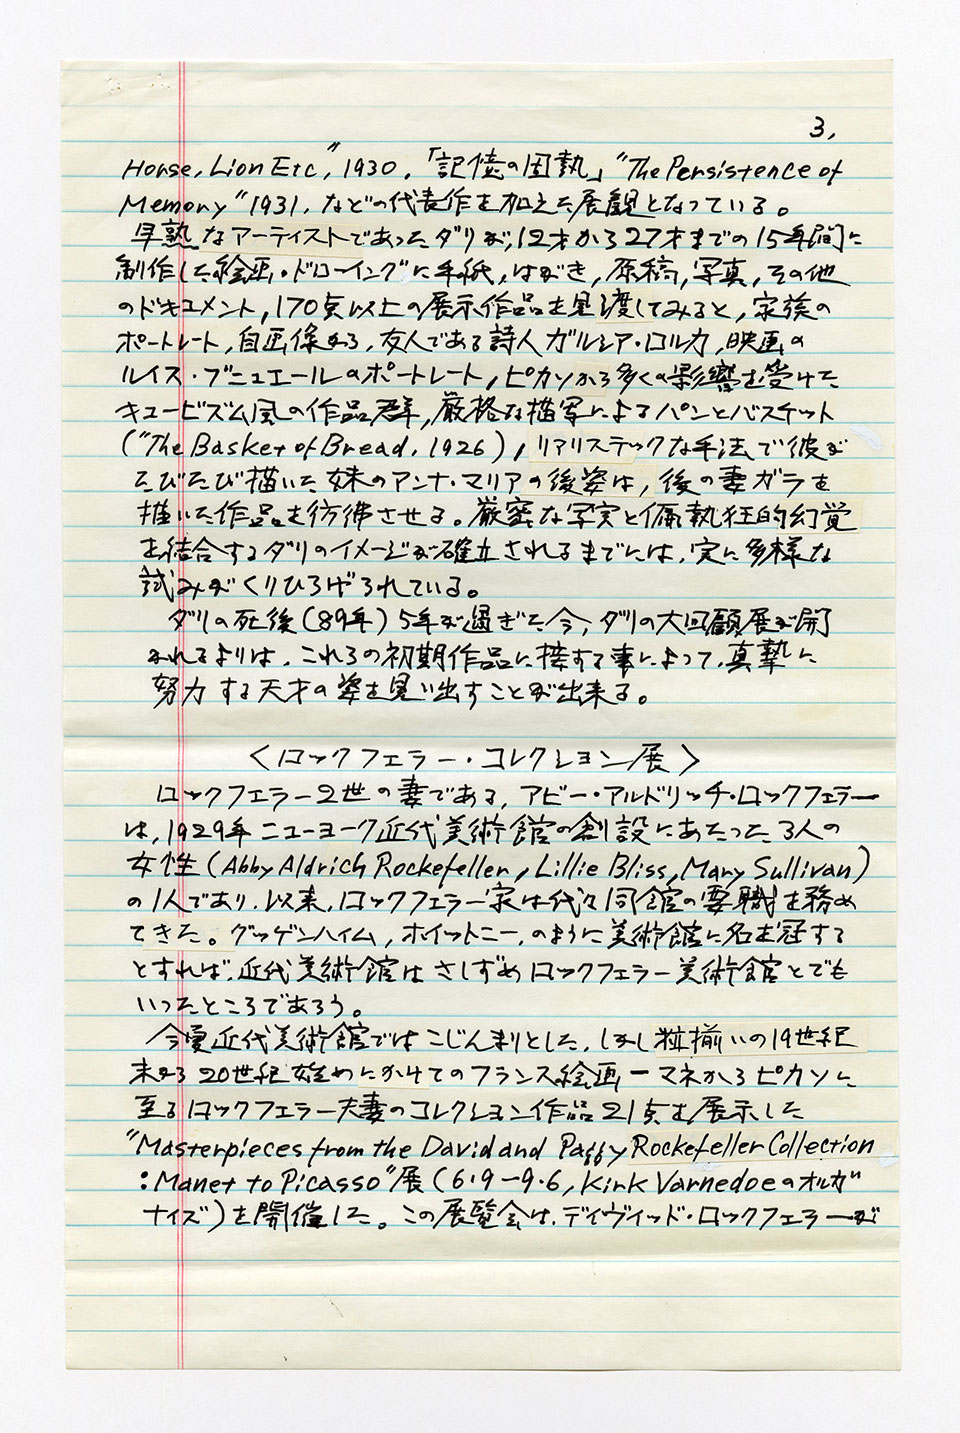 3,
Horse, Lion Etc", 1930,「記憶の固執」"The Persistence of
Memory" 1931, などの代表作を加えた展観となっている。
早熟なアーティストであったダリが, 12才から27才までの15年間に
制作した絵画・ドローイングに手紙, はがき, 原稿, 写真, その他
のドキュメント, 170点以上の展示作品を見渡してみると, 家族の
ポートレート, 自画像から, 友人である詩人ガルシア・ロルカ, 映画の
ルイス・ブニュエールのポートレート, ピカソから多くの影響を受けた
キュービズム風の作品群, 厳格な描写によるパンとバスケット
("The Basket of Bread, 1926), リアリステックな手法で彼が
たびたび描いた妹のアンナ・マリアの後姿は, 後の妻ガラを
描いた作品を彷彿させる。厳密な写実と偏執狂的幻覚
を結合するダリのイメージが確立されるまでには, 実に多様な
試みがくりひろげられている。
ダリの死後(89年)5年が過ぎた今, ダリの大回顧展が開
かれるよりは, これらの初期作品に接する事によって, 真摯に
努力する天才の姿を見い出すことが出来る。
〈ロックフェラー・コレクション展〉
ロックフェラー2世の妻である, アビー・アルドリッチ・ロックフェラー
は, 1929年ニューヨーク近代美術館の創設にあたった3人の
女性(Abby Aldrich Rockefeller, Lillie Bliss, Mary Sullivan)
の1人であり, 以来, ロックフェラー家は代々同館の要職を務め
てきた。グッゲンハイム, ホイットニー, のように美術館に名を冠する
とすれば, 近代美術館はさしずめロックフェラー美術館とでも
いったところであろう。
今夏近代美術館ではこじんまりとした, しかし粒揃いの19世紀
末から20世紀始めにかけてのフランス絵画ーマネからピカソに
至るロックフェラー夫妻のコレクション作品21点を展示した
"Masterpieces from the David and Peggy Rockefeller Collection
: Manet to Picasso"展(6・9ー9・6, Kirk Varnedoeのオルガ
ナイズ)を開催した。この展覧会は, デイヴィッド・ロックフェラーが